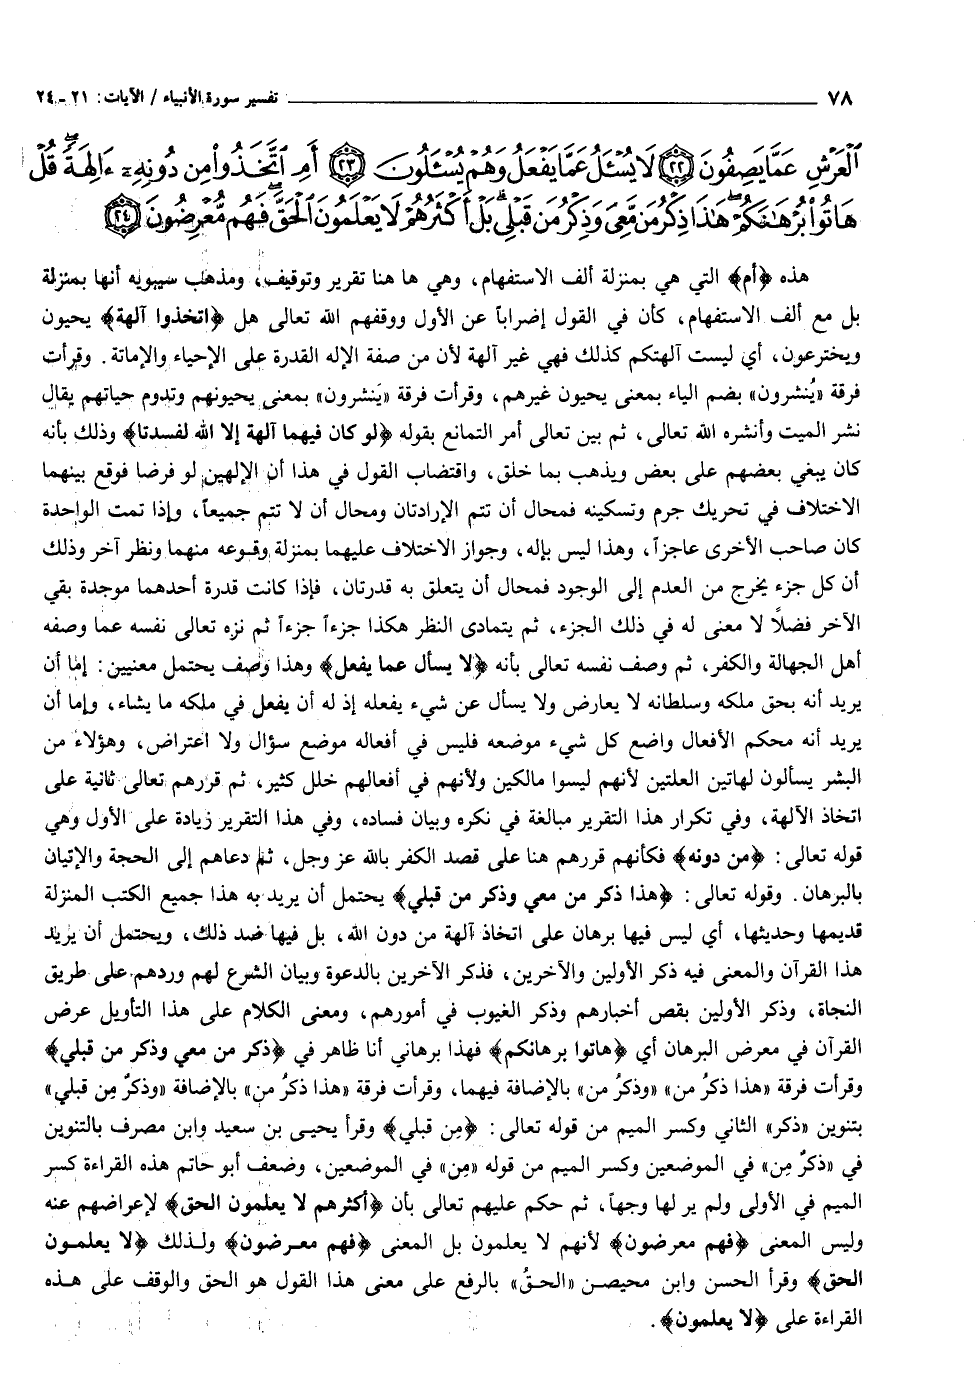 ٧٨ تفسير سورة الأنبياء / الآيات: ٢١ـ٢٤
ٱلْعَرْشِ عَمَّا يَصِفُونَ ﴿٢٢﴾ لَا يُسْـَٔلُ عَمَّا يَفْعَلُ وَهُمْ يُسْـَٔلُونَ ﴿٢٣﴾ أَمِ ٱتَّخَذُوا۟ مِن دُونِهِۦٓ ءَالِهَةً ۖ قُلْ
هَاتُوا۟ بُرْهَـٰنَكُمْ ۖ هَـٰذَا ذِكْرُ مَن مَّعِىَ وَذِكْرُ مَن قَبْلِى ۗ بَلْ أَكْثَرُهُمْ لَا يَعْلَمُونَ ٱلْحَقَّ ۖ فَهُم مُّعْرِضُونَ ﴿٢٤﴾
هذه ﴿أم﴾ التي هي بمنزلة ألف الاستفهام، وهي ها هنا تقرير وتوقيف، ومذهب سيبويه أنها بمنزلة
بل مع ألف الاستفهام، كأن في القول إضراباً عن الأول ووقفهم الله تعالى هل ﴿اتخذوا آلهة﴾ يحيون
ويخترعون، أي ليست آلهتكم كذلك فهي غير آلهة لأن من صفة الإله القدرة على الإحياء والإماتة. وقرأت
فرقة «يُنشرون» بضم الياء بمعنى يحيون غيرهم، وقرأت فرقة «يَنشرون» بمعنى يحيونهم وتدوم حياتهم يقال
نشر الميت وأنشره الله تعالى، ثم بين تعالى أمر التمانع بقوله ﴿لو كان فيهما آلهة إلا الله لفسدتا﴾ وذلك بأنه
كان يبغي بعضهم على بعض ويذهب بما خلق، واقتضاب القول في هذا أن الإلهين لو فرضا فوقع بينهما
الاختلاف في تحريك جرم وتسكينه فمحال أن تتم الإرادتان ومحال أن لا تتم جميعاً، وإذا تمت الواحدة
كان صاحب الأخرى عاجزاً، وهذا ليس بإله، وجواز الاختلاف عليهما بمنزلة وقوعه منهما ونظر آخر وذلك
أن كل جزء يخرج من العدم إلى الوجود فمحال أن يتعلق به قدرتان، فإذا كانت قدرة أحدهما موجدة بقي
الآخر فضلًا لا معنى له في ذلك الجزء، ثم يتمادى النظر هكذا جزءاً جزءاً ثم نزه تعالى نفسه عما وصفه
أهل الجهالة والكفر، ثم وصف نفسه تعالى بأنه ﴿لا يسأل عما يفعل﴾ وهذا وصف يحتمل معنيين: إما أن
يريد أنه بحق ملكه وسلطانه لا يعارض ولا يسأل عن شيء يفعله إذ له أن يفعل في ملكه ما يشاء، وإما أن
يريد أنه محكم الأفعال واضع كل شيء موضعه فليس في أفعاله موضع سؤال ولا اعتراض، وهؤلاء من
البشر يسألون لهاتين العلتين لأنهم ليسوا مالكين ولأنهم في أفعالهم خلل كثير، ثم قررهم تعالى ثانية على
اتخاذ الآلهة، وفي تكرار هذا التقرير مبالغة في نكره وبيان فساده، وفي هذا التقرير زيادة على الأول وهي
قوله تعالى: ﴿من دونه﴾ فكأنهم قررهم هنا على قصد الكفر بالله عز وجل، ثم دعاهم إلى الحجة والإتيان
بالبرهان. وقوله تعالى: ﴿هذا ذكر من معي وذكر من قبلي﴾ يحتمل أن يريد به هذا جميع الكتب المنزلة
قديمها وحديثها، أي ليس فيها برهان على اتخاذ آلهة من دون الله، بل فيها ضد ذلك، ويحتمل أن يريد
هذا القرآن والمعنى فيه ذكر الأولين والآخرين، فذكر الآخرين بالدعوة وبيان الشرع لهم وردهم على طريق
النجاة، وذكر الأولين بقص أخبارهم وذكر الغيوب في أمورهم، ومعنى الكلام على هذا التأويل عرض
القرآن في معرض البرهان أي ﴿هاتوا برهانكم﴾ فهذا برهاني أنا ظاهر في ﴿ذكر من معي وذكر من قبلي﴾
وقرأت فرقة «هذا ذكرُ من» «وذكرُ من» بالإضافة فيهما، وقرأت فرقة «هذا ذكرُ من» بالإضافة «وذكرٌ مِن قبلي»
بتنوين «ذكر» الثاني وكسر الميم من قوله تعالى: ﴿مِن قبلي﴾ وقرأ يحيى بن سعيد وابن مصرف بالتنوين
في «ذكرٌ مِن» في الموضعين وكسر الميم من قوله «مِن» في الموضعين، وضعف أبو حاتم هذه القراءة كسر
الميم في الأولى ولم ير لها وجهاً، ثم حكم عليهم تعالى بأن ﴿أكثرهم لا يعلمون الحق﴾ لإعراضهم عنه
وليس المعنى ﴿فهم معرضون﴾ لأنهم لا يعلمون بل المعنى ﴿فهم معرضون﴾ ولذلك ﴿لا يعلمون
الحق﴾ وقرأ الحسن وابن محيصن «الحقُ» بالرفع على معنى هذا القول هو الحق والوقف على هذه
القراءة على ﴿لا يعلمون﴾.